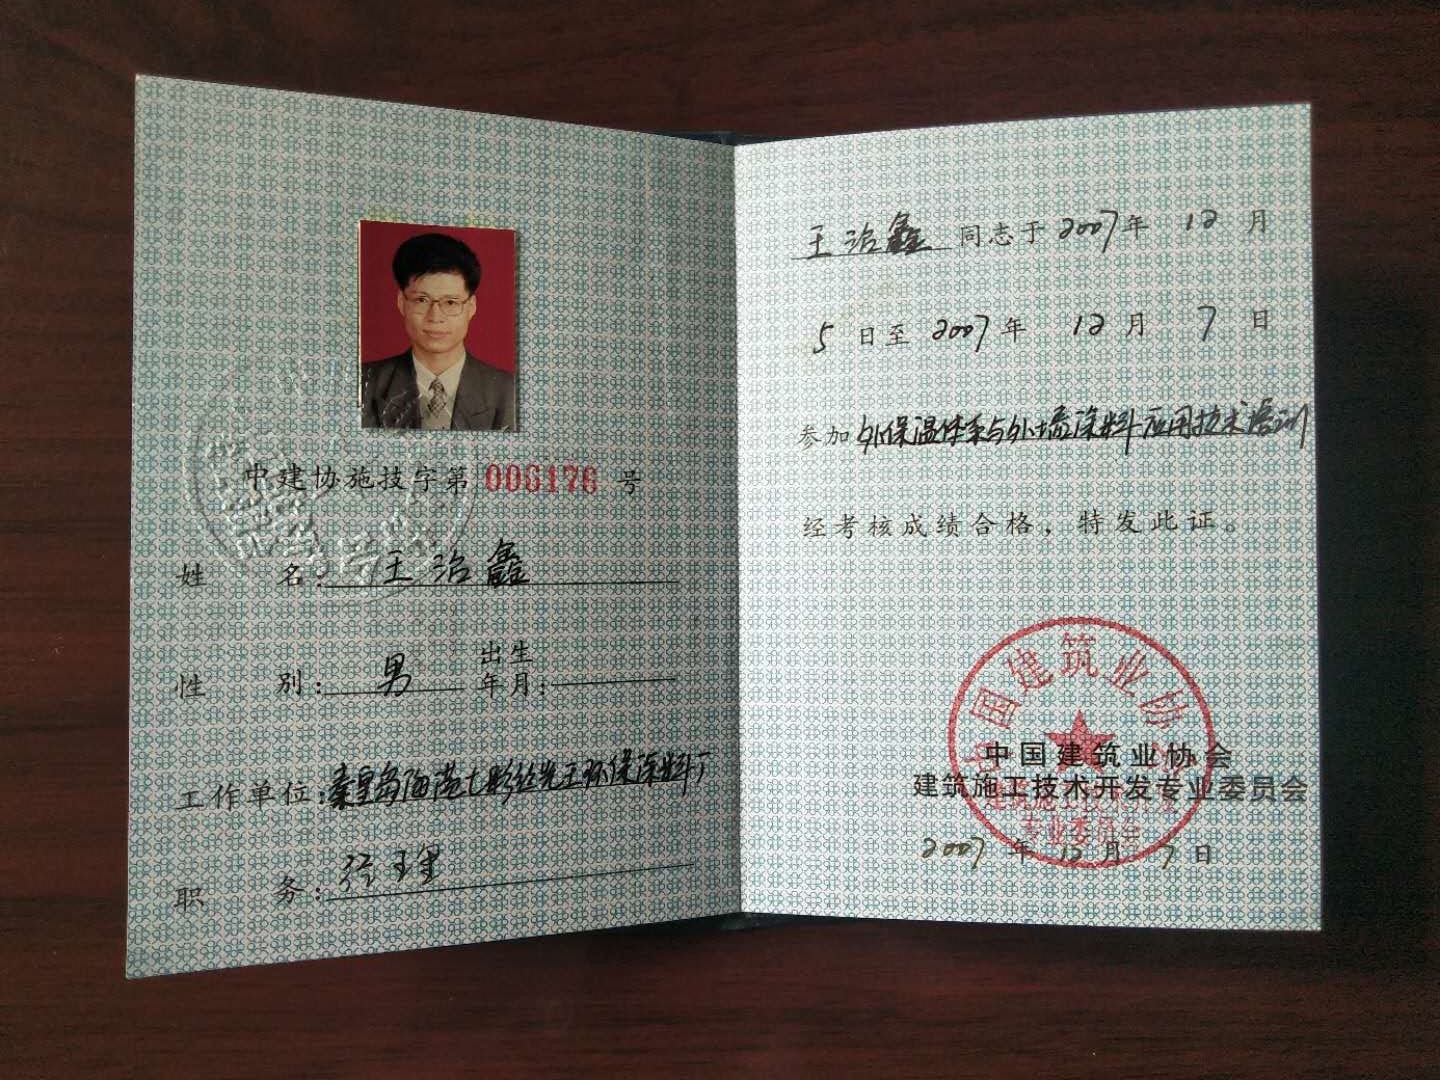 中建协施技字第 006176 号
姓 名：王治鑫
性 别：男 出生年月：
工作单位：秦皇岛海港七彩丝光王环保涂料厂
职 务：经理
王治鑫 同志于 2007 年 12 月
5 日至 2007 年 12 月 7 日
参加 外保温体系与外墙涂料应用技术培训
经考核成绩合格，特发此证。
中国建筑业协会
中国建筑业协会
建筑施工技术开发专业委员会
专业委员会
2007 年 12 月 7 日